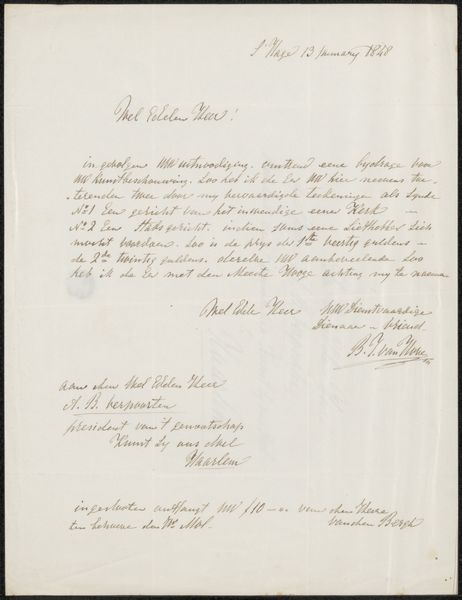 S'Hage 13 January 1848
Wel Edelen Heer!
ingevolgen UW uitnodiging, omtrend eene bydrage van
UW Kunstbeschouwing. Zoo heb ik de Eer UW hier neevens te
twee door my vervaardigde teekeningen als Zynde
No 1 Een gezicht van het inwendige eene Kerk –
No 2 Een Stads gezicht. indien zens eene Liefhebber Zich
mocht voordoen. Zoo is de prys de 1ste veertig guldens –
de 2de twintig guldens. dezelve UW aanbeveelende Zoo
heb ik de Eer met den Meeste Hooge achting my te noemen
Wel Edele Heer UW Dienstvaardige
Dienaar en Vriend
B. J. van Hove
aan den Wel Edelen Heer
A. B. verpoorten
president van 't genootschap
Kunst Zy ons doel
Haarlem
ingesloten ontfangt UW f10 – van den Heere
ten behoeve den Mol. van den Bergh